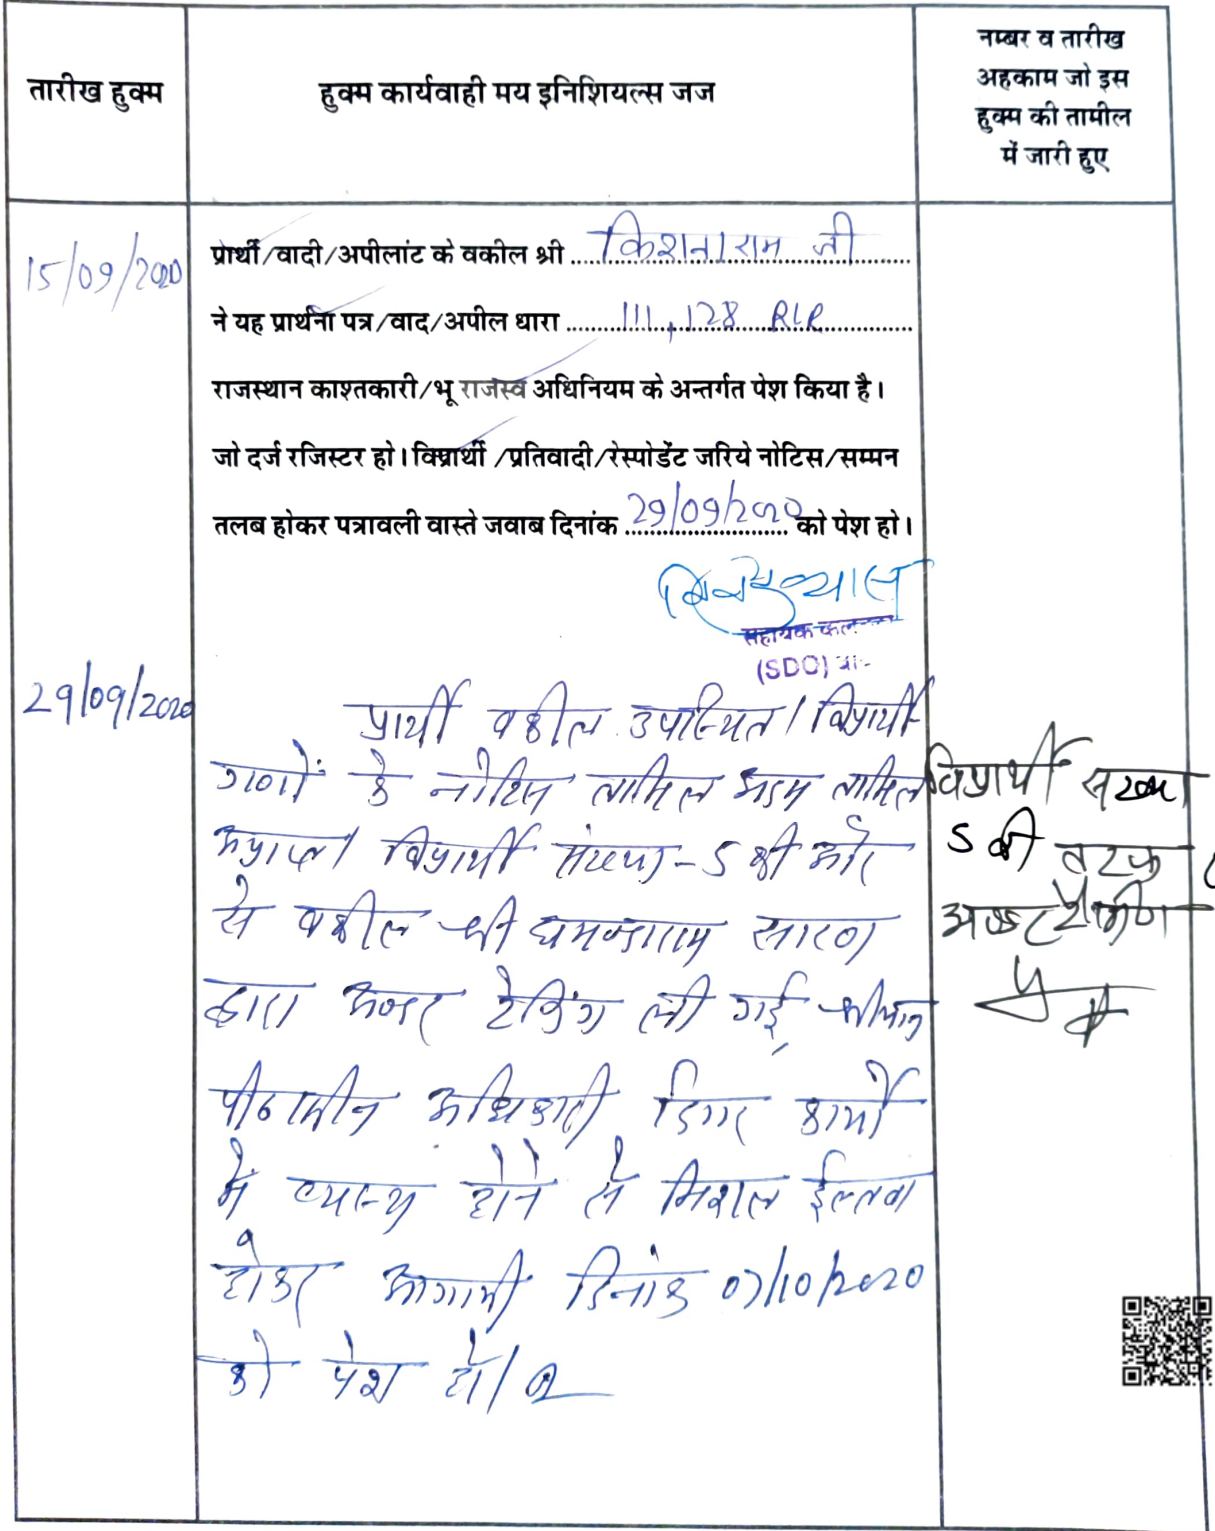 तारीख हुक्म
हुक्म कार्यवाही मय इनिशियल्स जज
नम्बर व तारीख
अहकाम जो इस
हुक्म की तामील
में जारी हुए
15/09/2020
प्रार्थी/वादी/अपीलांट के वकील श्री किशनाराम जी
ने यह प्रार्थना पत्र/वाद/अपील धारा 111, 128 RLR
राजस्थान काश्तकारी/भू राजस्व अधिनियम के अन्तर्गत पेश किया है।
जो दर्ज रजिस्टर हो। विप्रार्थी/प्रतिवादी/रेस्पोडेंट जरिये नोटिस/सम्मन
तलब होकर पत्रावली वास्ते जवाब दिनांक 29/09/2020 को पेश हो।
सहायक
(SDO)
29/09/2020
प्रार्थी वकील उपस्थित। विप्रार्थी
गणों के नोटिस तामिल अदम तामिल
अप्राप्त। विप्रार्थी संख्या-5 की ओर
से वकील श्री घमण्डाराम सारण
द्वारा अण्डर टेकिंग ली गई, श्रीमान
पीठासीन अधिकारी दिगर कार्यो
में व्यस्थ होने से मिशल ईल्तवा
होकर आगामी दिनांक 07/10/2020
को पेश हो।
विप्रार्थी संख्या
5 की तरफ
अण्डर टेकींग